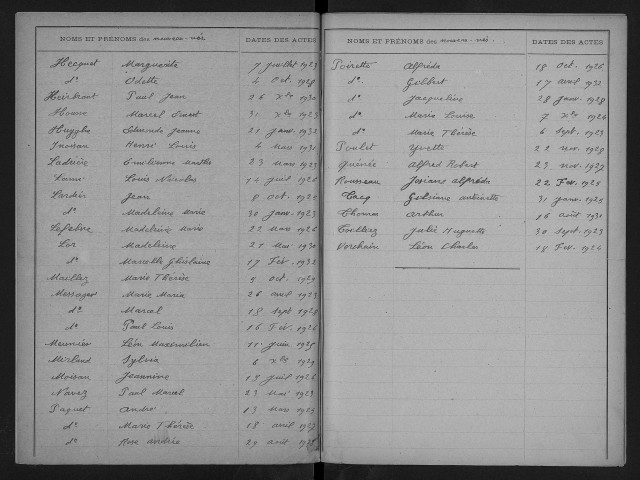 NOMS ET PRÉNOMS des nouveau-nés. DATES DES ACTES
Hecquet Marguerite 7 juillet 1923
d° Odette 4 Oct. 1928
Paul Jean 26 Xbre 1930
Marcel 31 Xbre 1923
Huyghe Edmonde Jeanne 21 janv. 1932
Henri Louis 4 Mars 1931
Ladrière Marthe 23 Mars
Lami Louis Nicolas 14 juil 1926
Lardier Jean 8 Oct. 1925
d° Madeleine Marie 30 janv. 1923
Lefebvre Madeleine Marie 22 Mars 1926
Ler Madeleine 21 Mai 1930
d° Marcelle Ghislaine 17 Fév. 1932
Maillez Marie Thérèse 9 Oct. 1929
Messager Marie 26 avril 1923
d° Marcel 18 Sept 1928
d° Paul Louis 16 Fév. 1926
Meunier Léon Maximilien 11 juin 1925
Merland Sylvia 6 Xbre 1929
Moisan Jeannine 13 juil 1926
Navez Paul Marcel 23 Mai 1923
Paquet André 13 Mars 1925
d° Marie Thérèse 18 avril 1927
d° Rose Andrée 29 août 1928
NOMS ET PRÉNOMS des nouveau-nés. DATES DES ACTES
Poirette Alfréda 18 Oct. 1926
d° Gilbert 17 avril 1932
d° Jacqueline 28 janv. 1928
d° Marie Louise 7 Xbre 1924
d° Marie Thérèse 6 Sept 1923
Poulet Yvette 22 nov. 1928
Quénée Alfred Robert 23 nov. 1929
Rousseau Josiane Alfréda 22 Fév. 1925
Ghislaine Antoinette 31 janv. 1925
Thomas Arthur 16 août 1931
Julie Huguette 30 Sept. 1923
Verchain Léon Charles 18 Fév. 1926